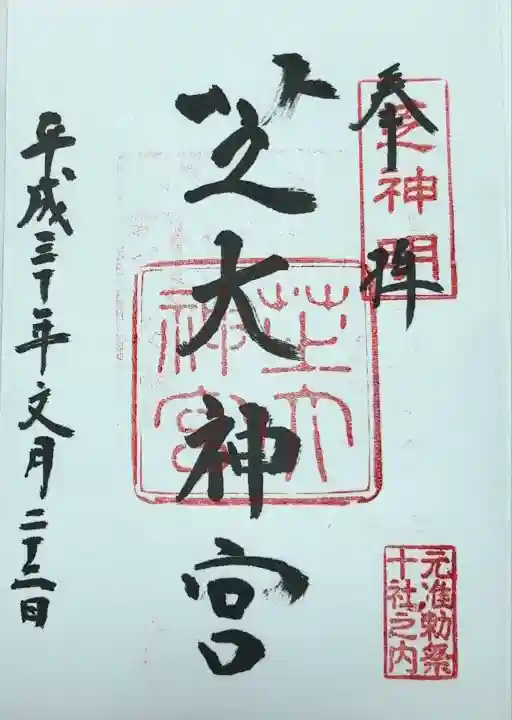 奉拝
芝神明
芝大神宮
芝大神宮
元准勅祭
十社之内
平成三十年文月二十二日